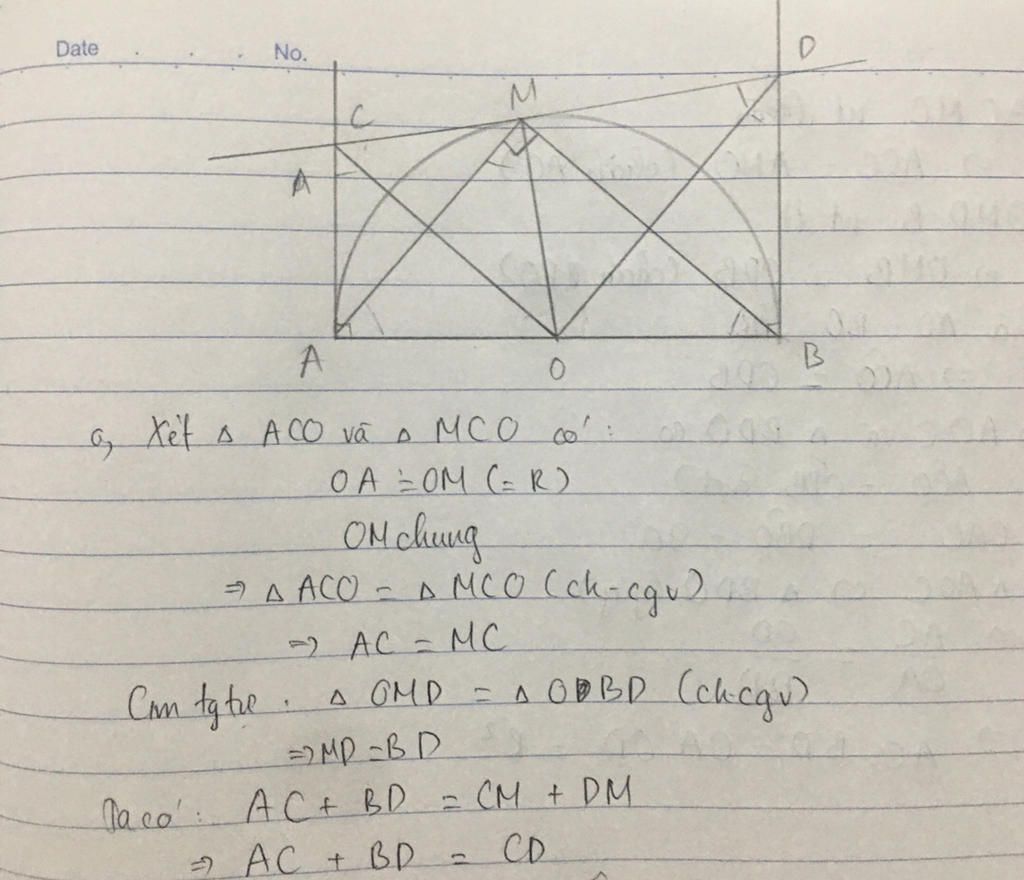 Date No.
D
M
C
A
A
O
B
a, Xét Δ ACO và Δ MCO có:
OA = OM (= R)
OM chung
⇒ Δ ACO = Δ MCO (ch-cgv)
⇒ AC = MC
Cm tg tự. Δ OMD = Δ OBD (ch-cgv)
⇒ MD = BD
Ta có: AC + BD = CM + DM
⇒ AC + BD = CD